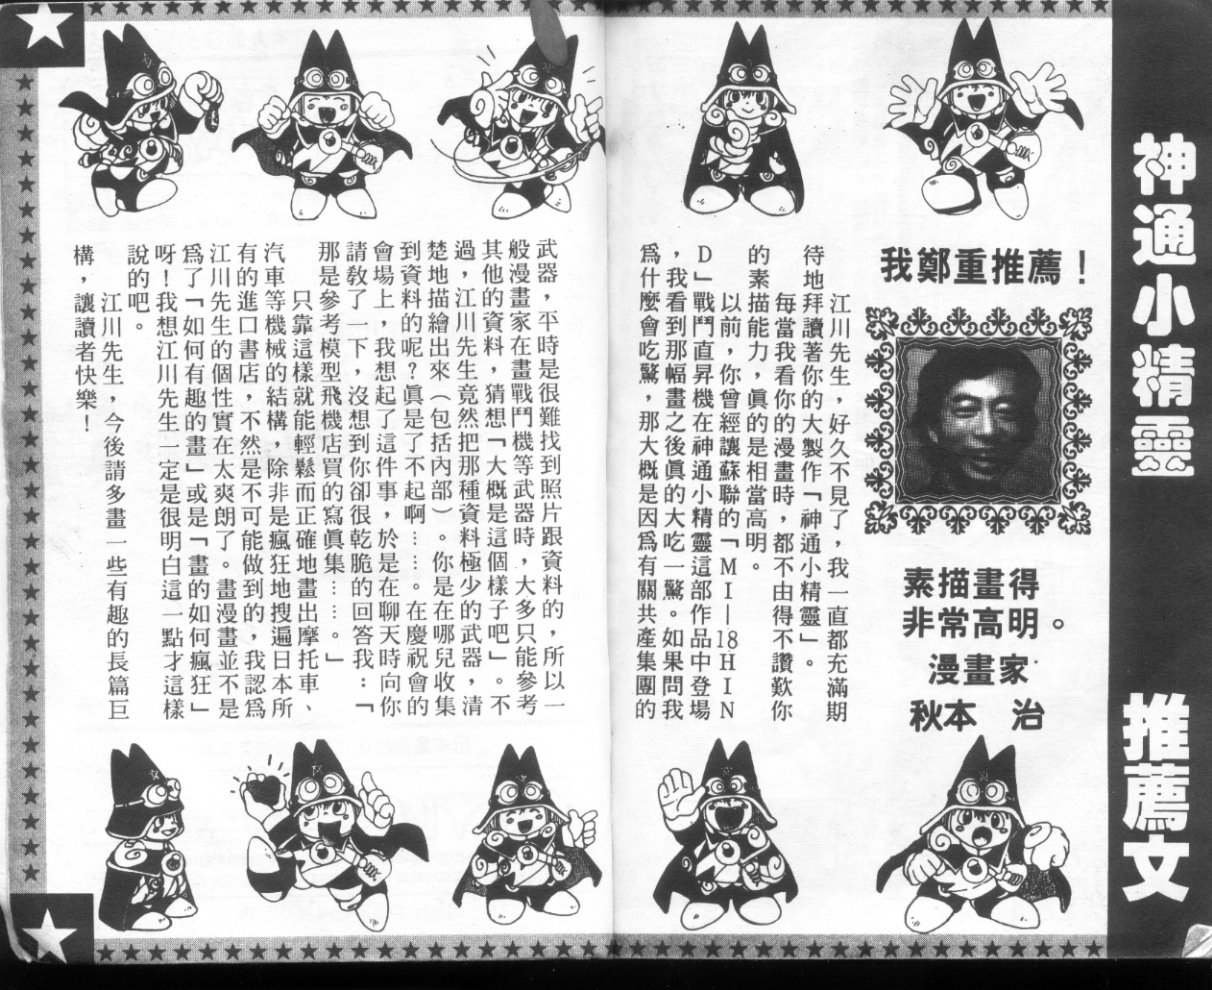 神通小精靈
推薦文
我鄭重推薦！
素描畫得
非常高明。
漫畫家
秋本　治
江川先生，好久不見了，我一直都充滿期
待地拜讀著你的大製作「神通小精靈」。
每當我看你的漫畫時，都不由得不讚歎你
的素描能力，眞的是相當高明。
以前，你曾經讓蘇聯的「MI—18HIN
D」戰鬥直昇機在神通小精靈這部作品中登場
，我看到那幅畫之後眞的大吃一驚。如果問我
爲什麼會吃驚，那大概是因爲有關共產集團的
武器，平時是很難找到照片跟資料的，所以一
般漫畫家在畫戰鬥機等武器時，大多只能參考
其他的資料，猜想「大概是這個樣子吧」。不
過，江川先生竟然把那種資料極少的武器，清
楚地描繪出來（包括內部）。你是在哪兒收集
到資料的呢？眞是了不起啊……。在慶祝會的
會場上，我想起了這件事，於是在聊天時向你
請教了一下，沒想到你卻很乾脆的回答我：「
那是參考模型飛機店買的寫眞集……。」
只靠這樣就能輕鬆而正確地畫出摩托車、
汽車等機械的結構，除非是瘋狂地搜遍日本所
有的進口書店，不然是不可能做到的，我認爲
江川先生的個性實在太爽朗了。畫漫畫並不是
爲了「如何有趣的畫」或是「畫的如何瘋狂」
呀！我想江川先生一定是很明白這一點才這樣
說的吧。
江川先生，今後請多畫一些有趣的長篇巨
構，讓讀者快樂！